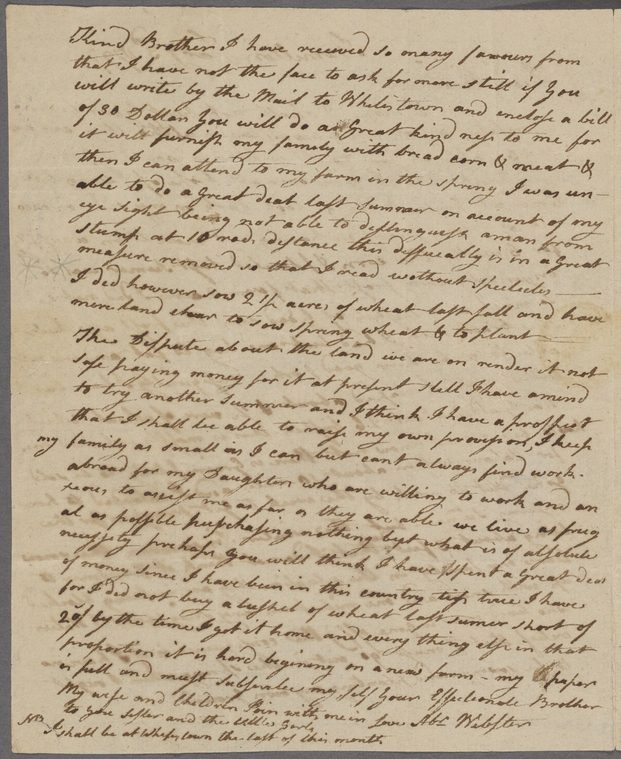 Kind Brother I have received so many favours from
that I have not the face to ask for more still if You
will write by the Mail to Whitestown and enclose a bill
of 30 Dollars You will do a Great kind ness to me for
it will furnish my family with bread corn & meat &
then I can attend to my farm in the spring I was un-
able to do a Great deal last summer on account of my
eye sight being not able to distinguish a man from
stump at 10 rods distance this difficulty is in a Great
measure removed so that I read without spectecles
I ded however sow 2 1/2 acres of wheat last fall and have
more land clear to sow spring wheat & to plant
The Dispute about the land we are on render it not
safe paying money for it at present still I have a mind
to try another summer and I think I have a prospect
that I shall be able to raise my own provision, I keep
my family as small as I can but cant always find work
abroad for my Daughters who are willing to work and an
xious to assist me as far as they are able we live as frug
al as possible purchasing nothing but what is of absolute
necessity perhaps you will think I have spent a Great deal
of money since I have been in this country tis true I have
for I did not buy a bushel of wheat last sumer short of
2 Dol by the time I got it home and every thing else in that
proportion it is hard begining on a new farm - my paper
is full and must subscribe my self Your Effectionate Brother
My wife and Children Join with me in Love Abm Webster
to your sister and the little Girls
NB I shall be at Whitestown the last of this month